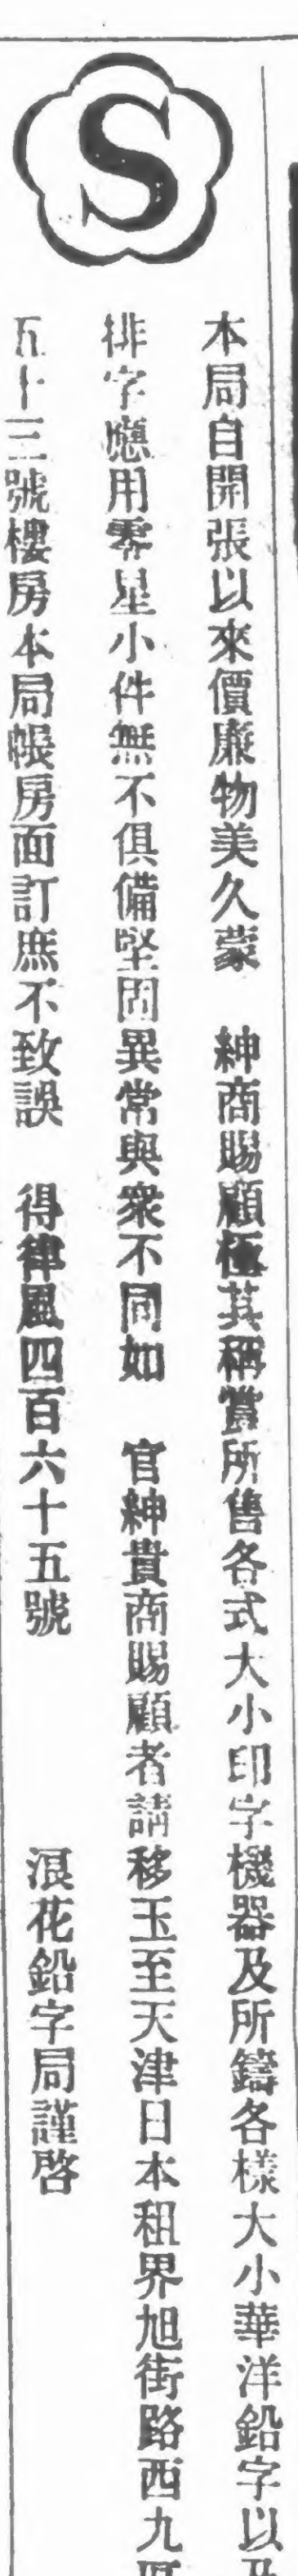 S
本局自開張以來價廉物美久蒙 紳商賜顧極其稱賞所售各式大小印字機器及所鑄各樣大小華洋鉛字以及
排字應用零星小件無不俱備堅固異常與衆不同如 官紳貴商賜顧者請移玉至天津日本租界旭街路西九區
五十三號樓房本局帳房面訂庶不致誤 得律風四百六十五號 浪花鉛字局謹啓